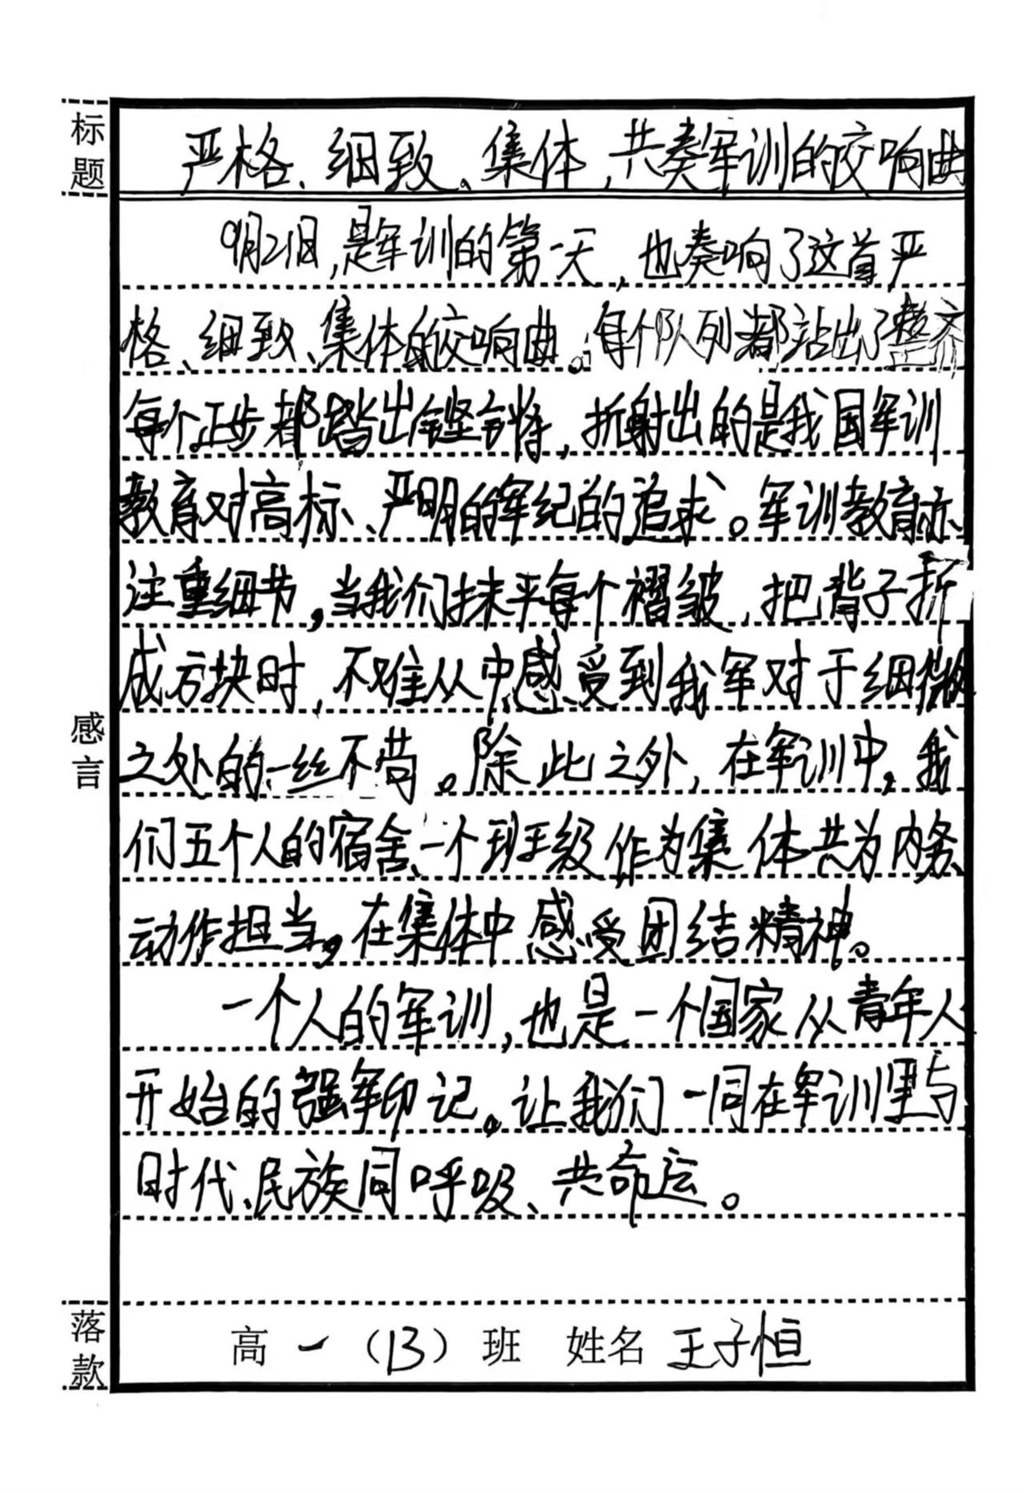 标题
严格、细致、集体，共奏军训的交响曲
9月21日，是军训的第一天，也奏响了这首严
格、细致、集体的交响曲。每个队列都站出了整齐
每个正步都踏出铿锵，折射出的是我国军训
教育对高标、严明的军纪的追求。军训教育亦
注重细节，当我们抹平每个褶皱，把背子折
成方块时，不难从中感受到我军对于细微
之处的一丝不苟。除此之外，在军训中，我
们五个人的宿舍、一个班级作为集体共为内务、
动作担当，在集体中感受团结精神。
一个人的军训，也是一个国家从青年人
开始的强军印记。让我们一同在军训里与
时代、民族同呼吸、共命运。
感言
落款
高一（13）班 姓名 王子恒